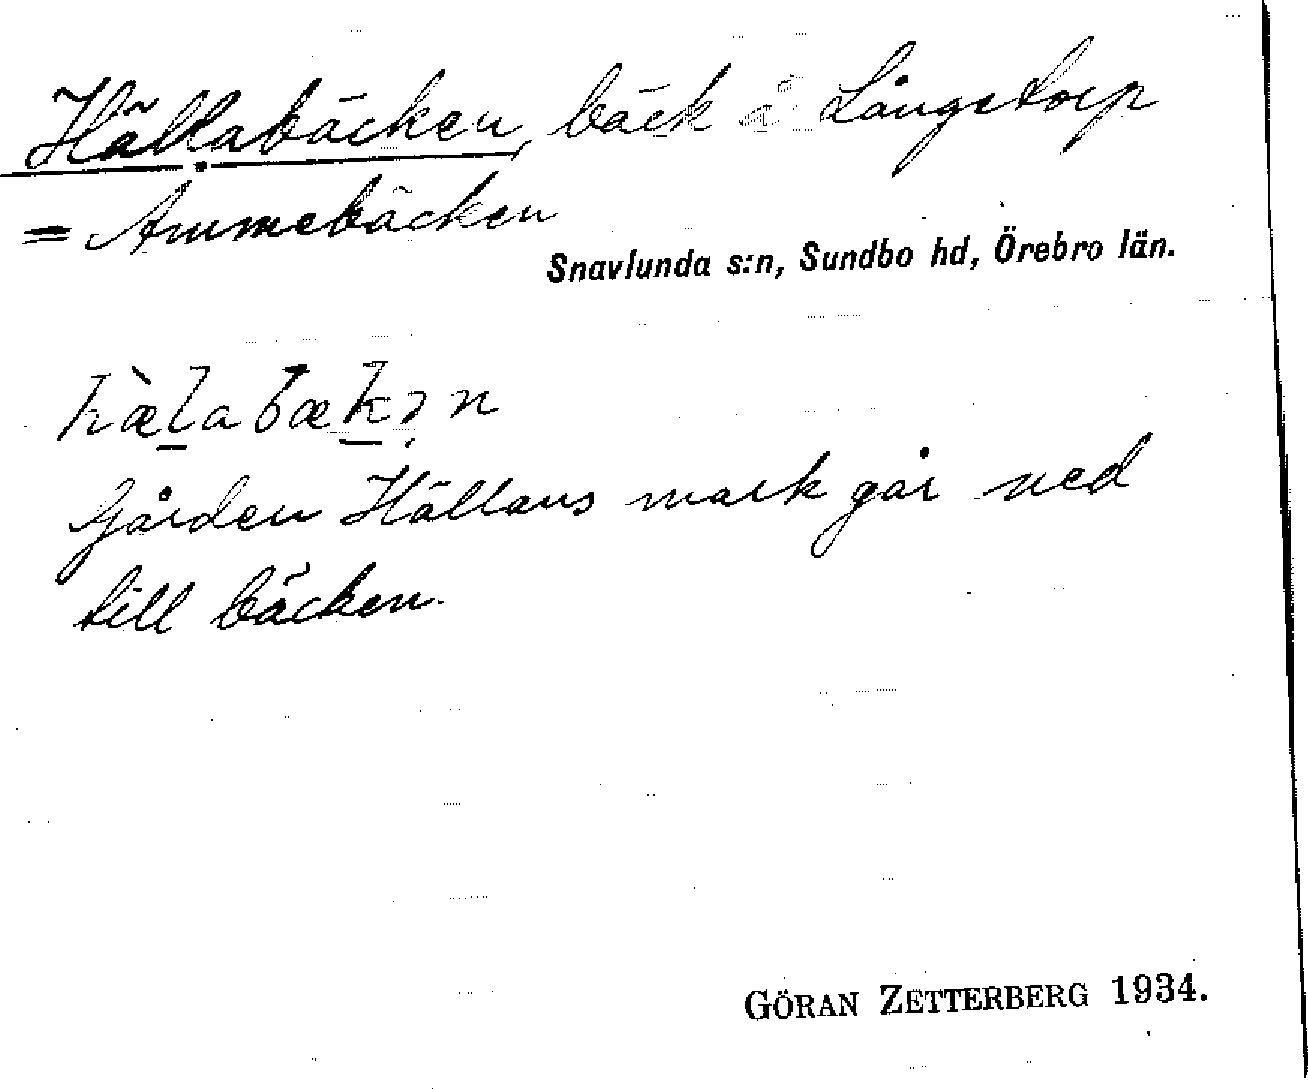 Hällabäcken, bäck å Långstorp
= Ammebäcken
Snavlunda s:n, Sundbo hd, Örebro län.
hæ̀l̠abæk̠ən
Gården Hällans mark går ned
till bäcken.
GÖRAN ZETTERBERG 1934.